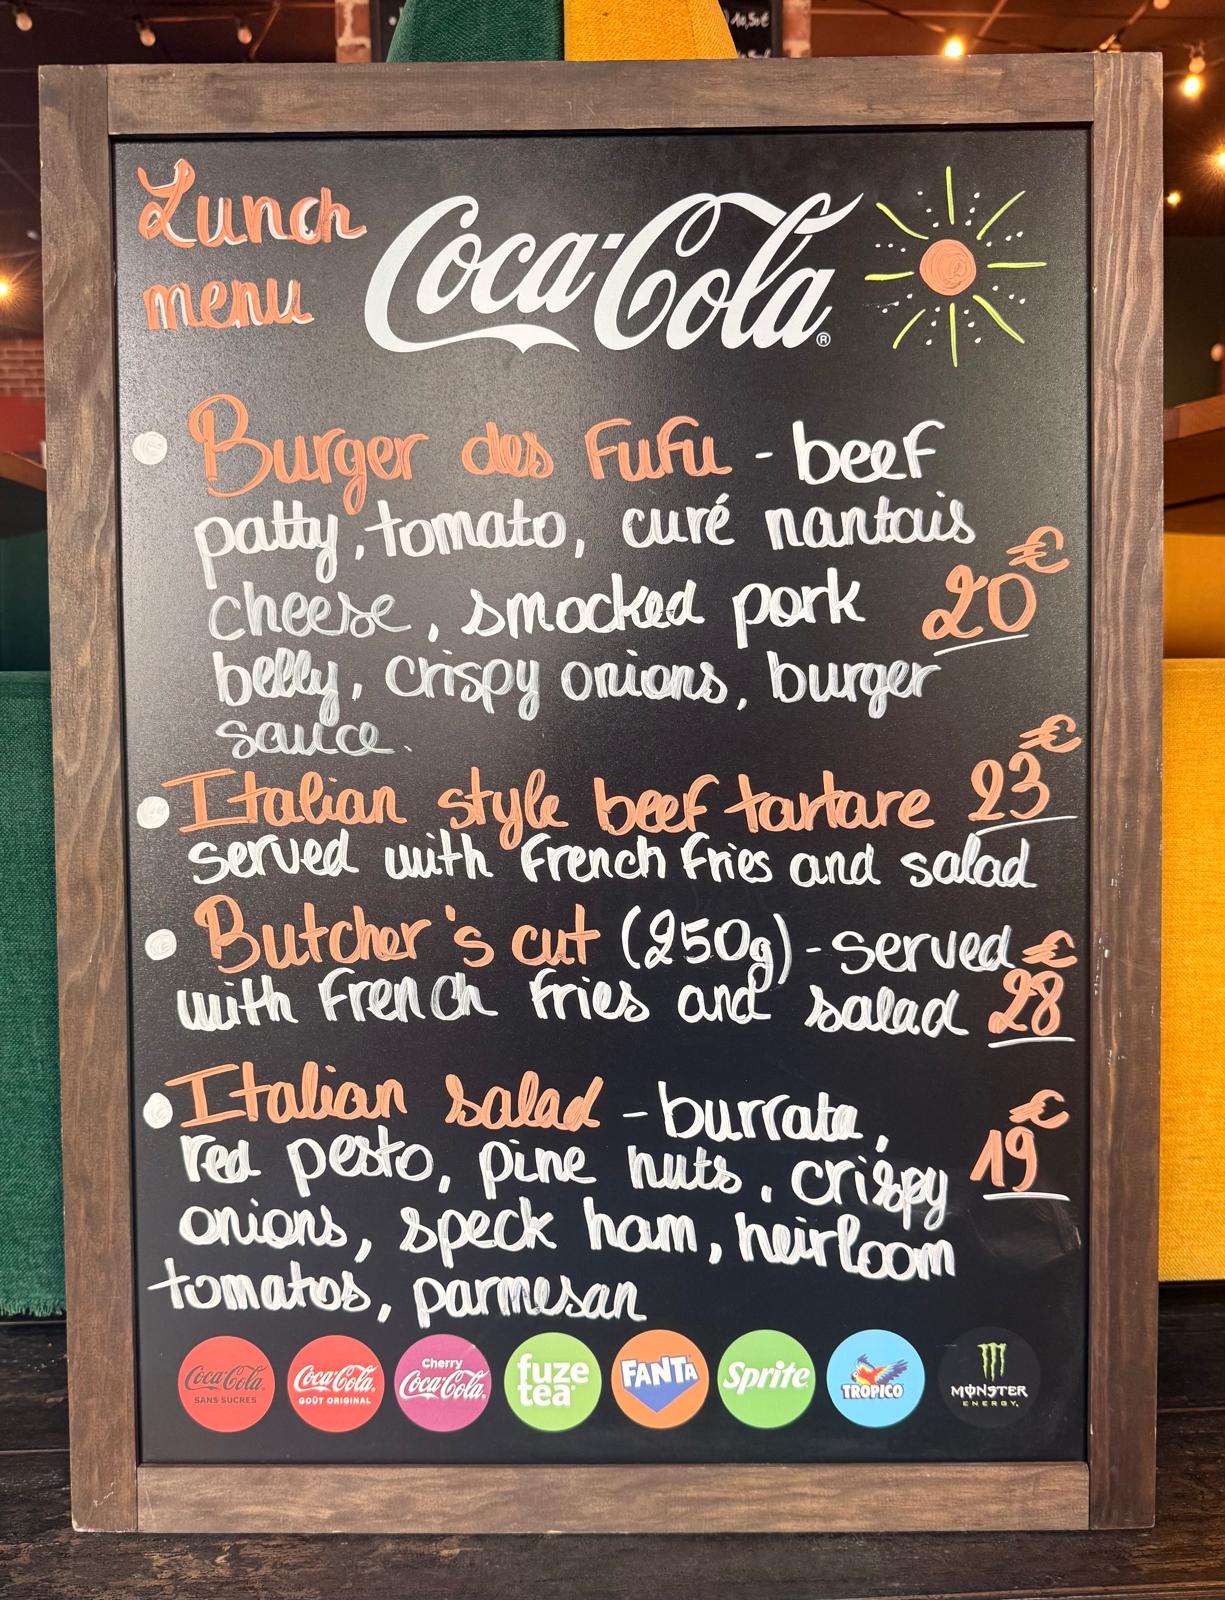 10,50€
Lunch
menu
Coca-Cola®
Burger des FuFu - beef
patty, tomato, curé nantais
cheese, smocked pork
belly, crispy onions, burger
sauce.
20€
Italian style beef tartare 23€
served with French Fries and salad
Butcher's cut (250g) - served
with French Fries and salad 28€
Italian salad - burrata,
red pesto, pine nuts, crispy
onions, speck ham, heirloom
tomatos, parmesan
19€
Coca-Cola. SANS SUCRES
Coca-Cola. GOÛT ORIGINAL
Cherry Coca-Cola.
fuze tea
FANTA
Sprite
TROPICO
MONSTER ENERGY